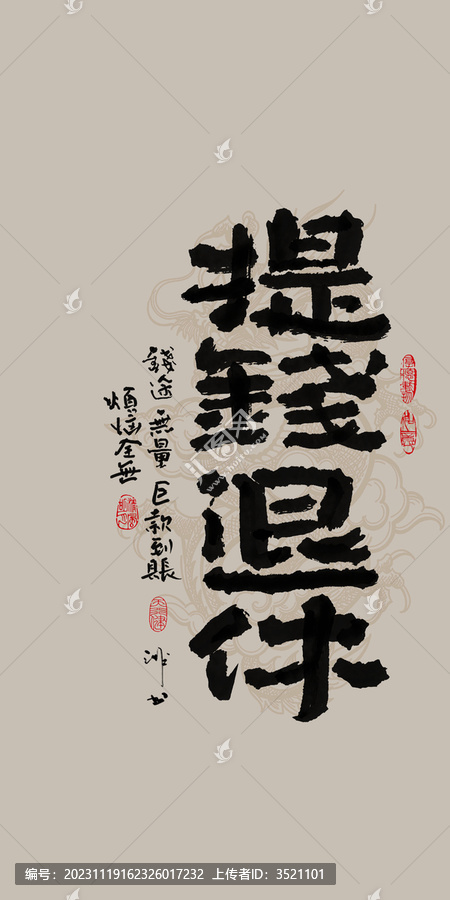 提錢退休
錢途無量 巨款到賬
煩惱全無
編号：20231119162326017232 上传者ID：3521101